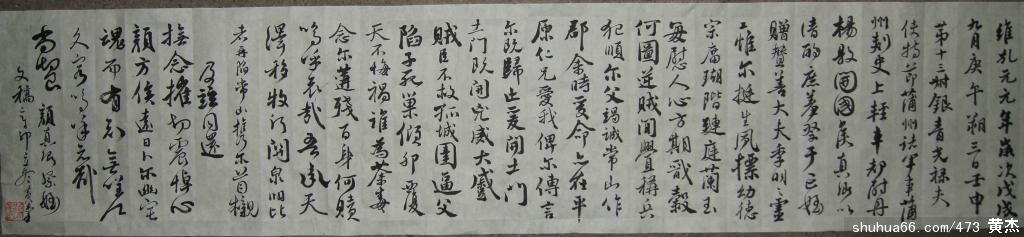 維乾元元年歲次戊戌
九月庚午朔三日壬申
第十三叔銀青光祿夫
使持節蒲州諸軍事蒲
州刺史上輕車都尉丹
楊縣開國侯真卿以
清酌庶羞祭于亡姪
贈贊善大夫季明之靈
惟爾挺生夙標幼德
宗廟瑚璉階庭蘭玉
每慰人心方期戩穀
何圖逆賊間釁稱兵
犯順爾父竭誠常山作
郡余時受命亦在平
原仁兄愛我俾爾傳言
爾既歸止爰開土門
土門既開兇威大蹙
賊臣不救孤城圍逼父
陷子死巢傾卵覆
天不悔禍誰為荼毒
念爾遘殘百身何贖
嗚乎哀哉吾承天
澤移牧河關泉明比
者再陷常山攜爾首櫬
及茲同還
撫念摧切震悼心
顏方俟遠日卜爾幽宅
魂而有知無嗟
久客嗚呼哀哉
尚饗
顏真卿祭姪
文稿
shuhua66.com/473 黄杰